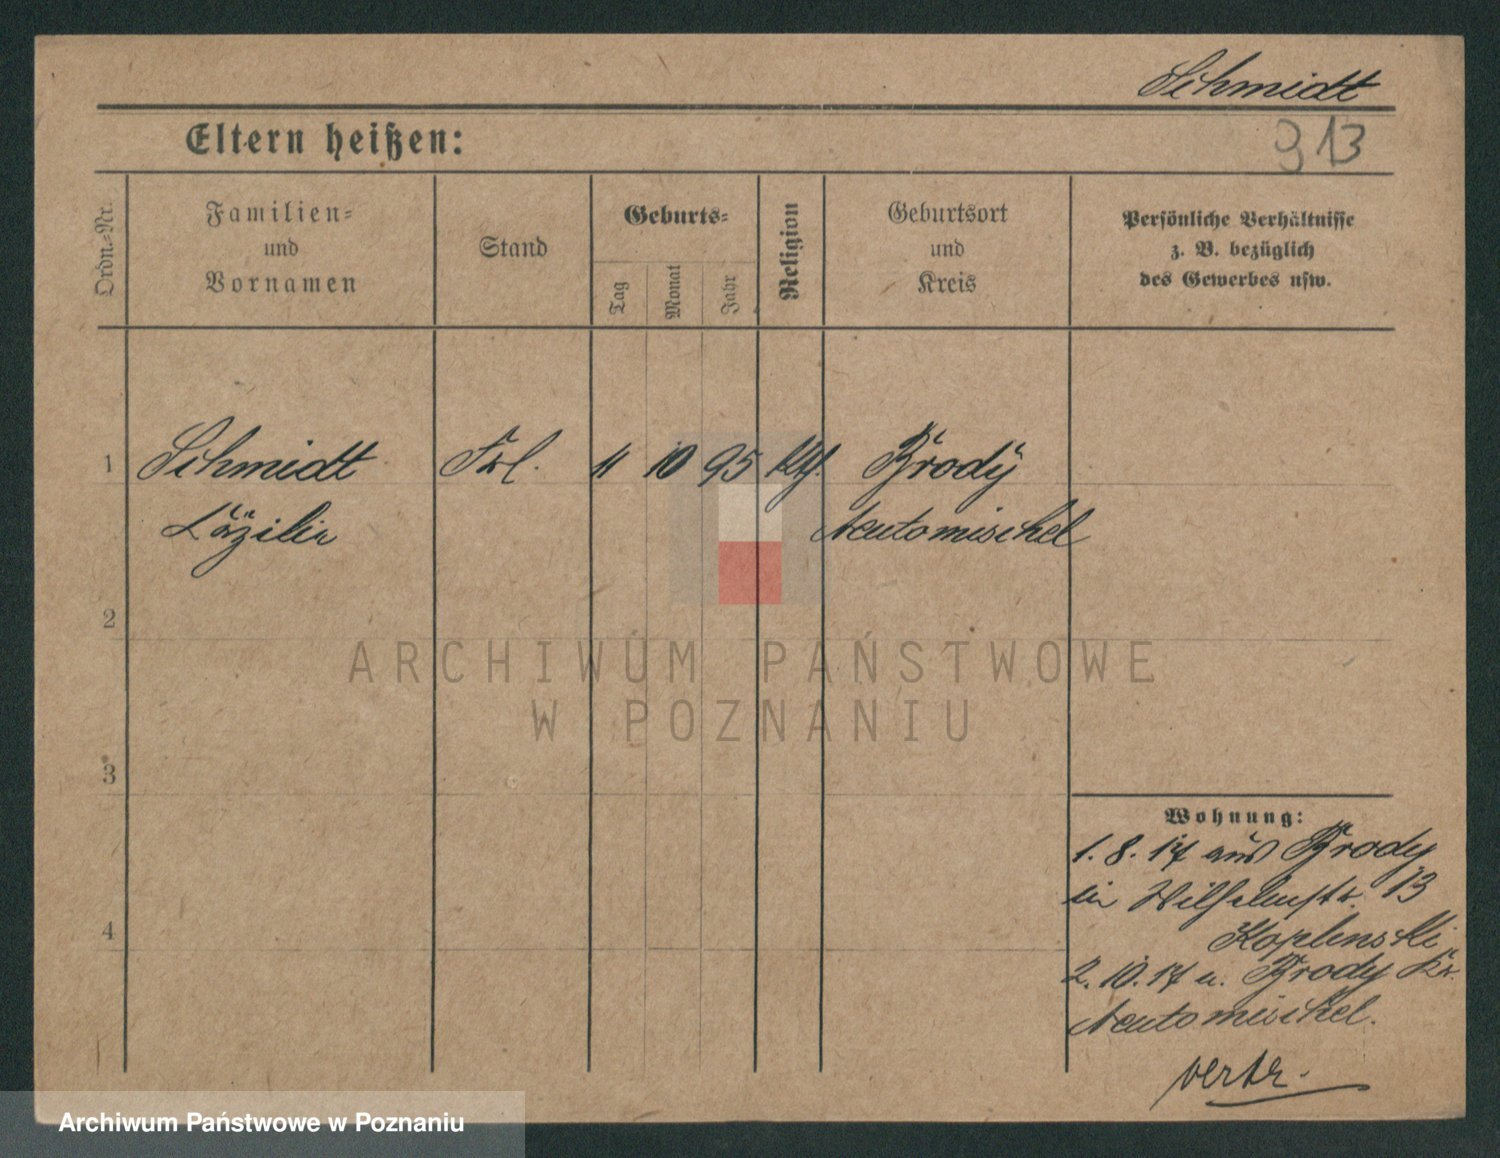 Schmidt
Eltern heißen:
913
Ordn.-Nr.
Familien-
und
Vornamen
Stand
Geburts-
Tag
Monat
Jahr
Religion
Geburtsort
und
Kreis
Persönliche Verhältnisse
z. B. bezüglich
des Gewerbes usw.
1 Schmidt Frl. 11 10 95 kth. Brody
Cäzilie Neutomischel
2
3
4
Wohnung:
1. 8. 17 aus Brody
in Wilhelmstr. 13
Koplinski
2. 10. 17 n. Brody Kr.
Neutomischel.
ARCHIWUM PAŃSTWOWE
W POZNANIU
Archiwum Państwowe w Poznaniu